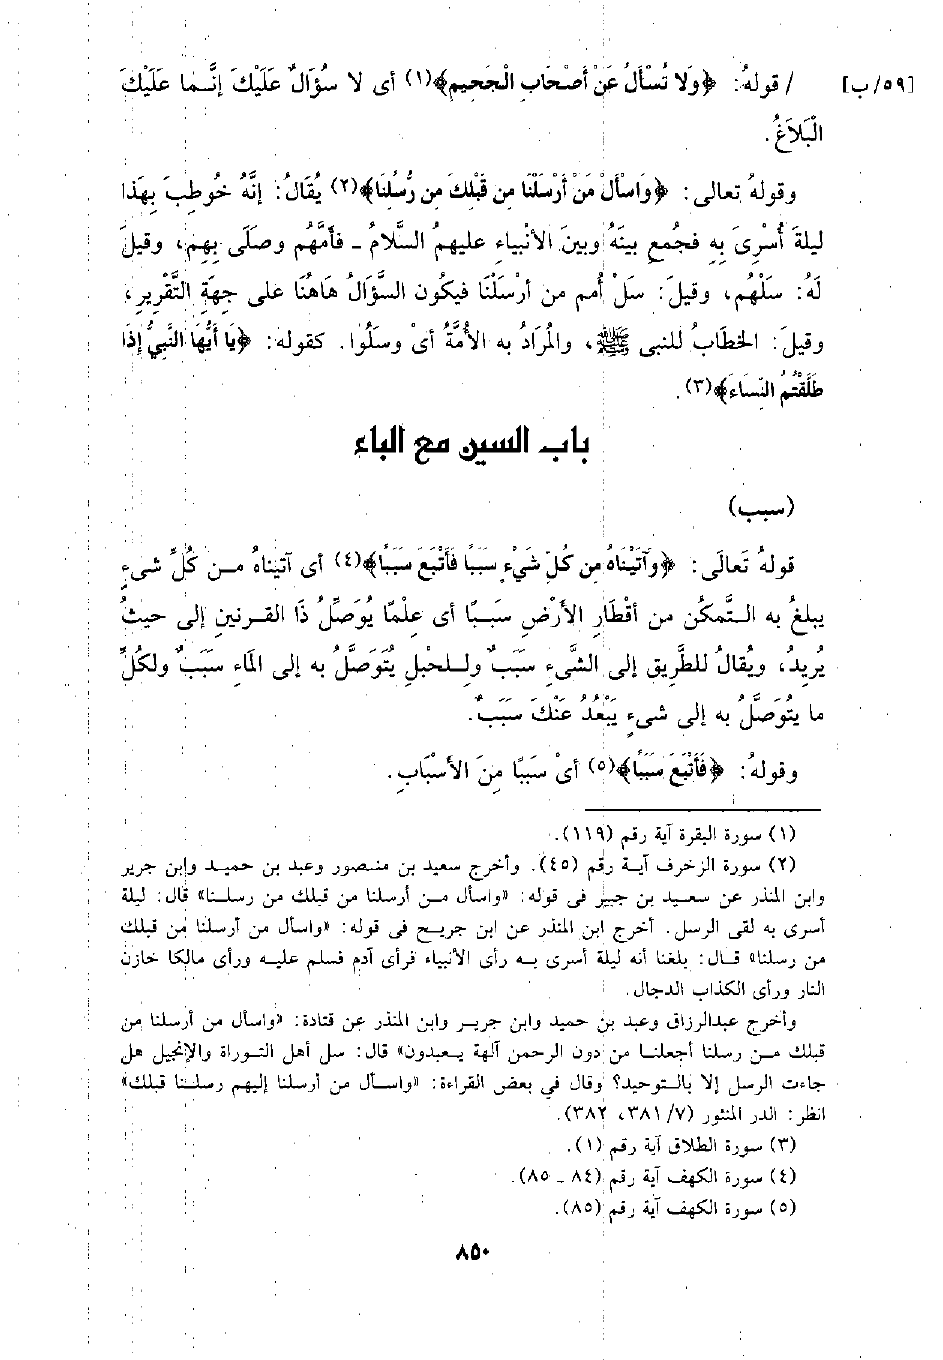 [٥٩/ب] / قولهُ: ﴿وَلَا تُسْأَلُ عَنْ أَصْحَابِ الْجَحِيمِ﴾(١) أى لا سُؤَالٌ عَلَيْكَ إنَّـما عَلَيْكَ
الْبَلاَغُ.
وقولهُ تعالى: ﴿وَاسْأَلْ مَنْ أَرْسَلْنَا مِن قَبْلِكَ مِن رُّسُلِنَا﴾(٢) يُقَالُ: إنَّهُ خُوطِبَ بِهَذَا
ليلةَ أُسْرِىَ بِهِ فجُمع بينَهُ وبينَ الأنْبياءِ عليهمُ السَّلامُ ـ فأمَّهُم وصَلَّى بِهِم، وقيلَ
لَهُ: سَلْهُم، وقيلَ: سَلْ أُمم من أرسَلْنَا فيكُون السُّؤَالُ هَاهُنَا على جِهَةِ التَّقْرِيرِ،
وقيلَ: الخطَابُ للنبى ﷺ، والمُرَادُ به الأُمَّةُ أىْ وسَلُوا. كقوله: ﴿يَا أَيُّهَا النَّبِيُّ إِذَا
طَلَّقْتُمُ النِّسَاءَ﴾(٣).
باب السين مع الباء
(سبب)
قولهُ تَعالَى: ﴿وَآتَيْنَاهُ مِن كُلِّ شَيْءٍ سَبَبًا فَأَتْبَعَ سَبَبًا﴾(٤) أى آتيناهُ مـن كُلِّ شىءٍ
يبلغُ به الـتَّمكُن من أقْطَارِ الأرْضِ سَبَـبًا أى عِلْمًا يُوَصِّلُ ذَا القـرنينِ إلى حيثُ
يُرِيدُ، ويُقالُ للطَّرِيق إلى الشَّىءِ سَبَبٌ ولِـلحْبلِ يُتَوَصَّلُ به إلى المَاءِ سَبَبٌ ولكُلِّ
ما يتُوَصَّلُ به إلى شىءٍ يَبْعُدُ عَنْكَ سَبَبٌ.
وقولهُ: ﴿فَأَتْبَعَ سَبَبًا﴾(٥) أىْ سَبَبًا مِنَ الأسْبَابِ.
(١) سورة البقرة آية رقم (١١٩).
(٢) سورة الزخرف آيـة رقم (٤٥). وأخرج سعيد بن منـصور وعبد بن حميـد وابن جرير
وابن المنذر عن سعـيد بن جبير فى قوله: «واسأل مـن أرسلنا من قبلك من رسلـنا» قال: ليلة
أسرى به لقى الرسل. أخرج ابن المنذر عن ابن جريـج فى قوله: «واسأل من أرسلنا من قبلك
من رسلنا» قـال: بلغنا أنه ليلة أسرى بـه رأى الأنبياء فرأى آدم فسلم عليـه ورأى مالكا خازن
النار ورأى الكذاب الدجال.
وأخرج عبدالرزاق وعبد بن حميد وابن جريـر وابن المنذر عن قتادة: «واسأل من أرسلنا من
قبلك مـن رسلنا أجعلنـا من دون الرحمن آلهة يـعبدون» قال: سل أهل التـوراة والإنجيل هل
جاءت الرسل إلا بالـتوحيد؟ وقال في بعض القراءة: «واسـأل من أرسلنا إليهم رسلـنا قبلك»
انظر: الدر المنثور (٧/ ٣٨١، ٣٨٢).
(٣) سورة الطلاق آية رقم (١).
(٤) سورة الكهف آية رقم (٨٤ ـ ٨٥).
(٥) سورة الكهف آية رقم (٨٥).
٨٥٠